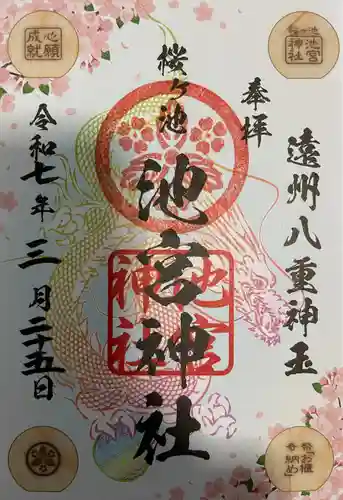 奉拝
遠州八重神玉
桜ヶ池
池宮神社
池宮
神社
令和七年三月二十五日
心願
成就
桜ヶ池
池宮
神社
祭「お櫃
奉納め」